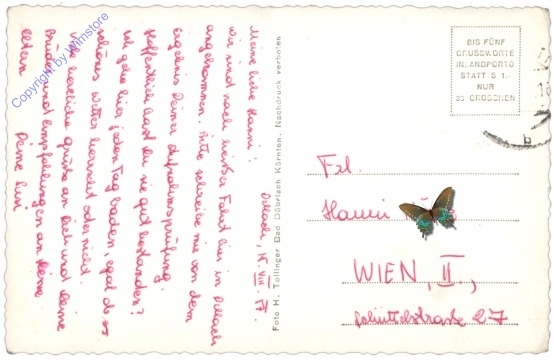 Döbriach, 15. VIII. 57.
Meine liebe Hanni!
Wir sind nach heißer Fahrt hier in Döbriach
angekommen. Bitte schreibe mir von dem
Ergebnis Deiner Aufnahmsprüfung.
Hoffentlich hast du sie gut bestanden?
Ich gehe hier jeden Tag baden, egal ob es
schönes Wetter herrscht oder nicht.
Viele herzliche Grüße an Dich und Deine
Brüder und Empfehlungen an Deine
Eltern
Deine
Foto H. Tollinger Bad Döbriach Kärnten. Nachdruck verboten
BIS FÜNF
GRUSSWORTE
INLANDPORTO
STATT S 1.-
NUR
30 GROSCHEN
b
Frl.
Hanni
WIEN, II.,
27
Copyright by Wilnstore